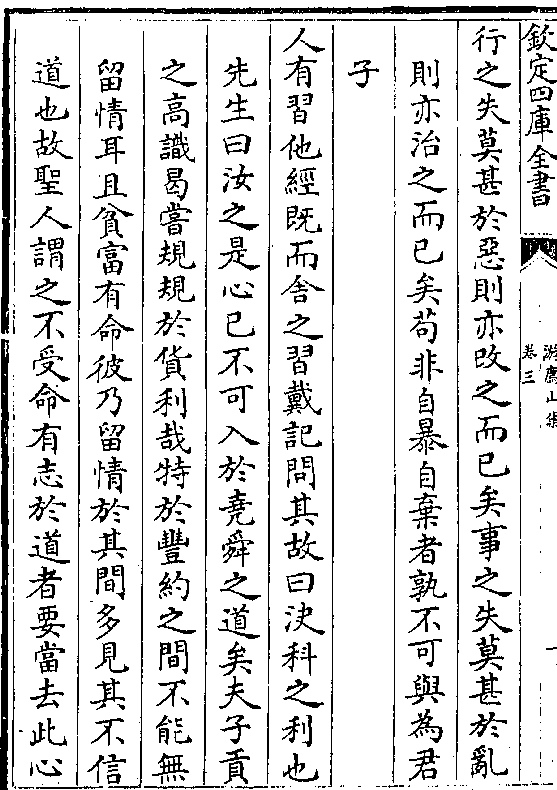 欽定四庫全書
游廌山集
卷三
行之失莫甚於惡則亦改之而已矣事之失莫甚於亂
則亦治之而已矣苟非自暴自棄者孰不可與為君
子
人有習他經既而舍之習戴記問其故曰決科之利也
先生曰汝之是心已不可入於堯舜之道矣夫子貢
之高識曷嘗規規於貨利哉特於豐約之間不能無
留情耳且貧富有命彼乃留情於其間多見其不信
道也故聖人謂之不受命有志於道者要當去此心